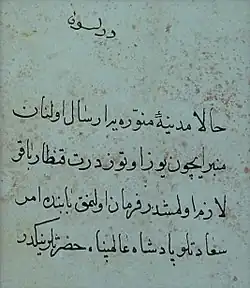 حالا مدینهٔ منوّره یه ارسال اولنان
منبر ایچون یوز اوتوز درت قنطار باقر
لازم اولمشدر فرمان اولنمق بابنده امر
سعادتلو پادشاه عالمپناه حضرتلرینكدر